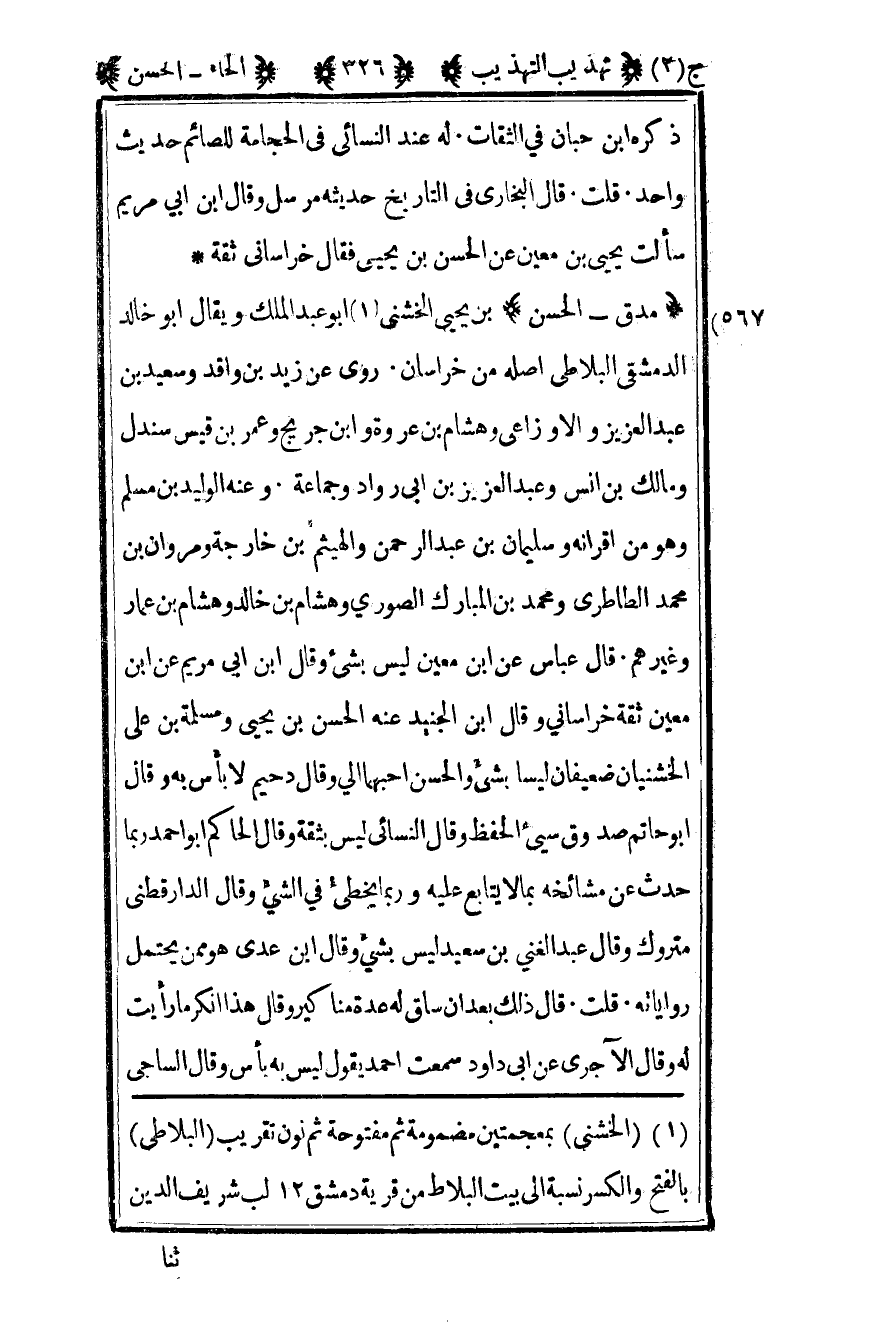 ج (٢) ﴿ تهذيب التهذيب ﴾ ﴿ ٣٢٦ ﴾ ﴿ الحاء - الحسن ﴾
ذكره ابن حبان في الثقات · له عند النسائى فى الحجامة للصائم حديث
واحد · قلت · قال البخارى فى التاريخ حديثه مرسل وقال ابن ابي مريم
سألت يحيى بن معين عن الحسن بن يحيى فقال خراسانى ثقة *
﴿ مدق - الحسن ﴾ بن يحيى الخشنى (١) ابو عبد الملك ويقال ابو خالد
٥٦٧)
الدمشقى البلاطى اصله من خراسان · روى عن زيد بن واقد وسعيد بن
عبد العزيز والاوزاعى وهشام بن عروة وابن جريج وعمر بن قيس سندل
ومالك بن انس وعبد العزيز بن ابى رواد وجماعة · وعنه الوليد بن مسلم
وهو من اقرانه وسليمان بن عبد الرحمن والهيثم بن خارجة ومروان بن
محمد الطاطرى ومحمد بن المبارك الصوري وهشام بن خالد وهشام بن عمار
وغيرهم · قال عباس عن ابن معين ليس بشئ وقال ابن ابى مريم عن ابن
معين ثقة خراساني وقال ابن الجنيد عنه الحسن بن يحيى ومسلمة بن على
الخشنيان ضعيفان ليسا بشئ والحسن احبهما الي وقال دحيم لا بأس به وقال
ابو حاتم صدوق سيئ الحفظ وقال النسائى ليس بثقة وقال الحاكم ابو احمد ربما
حدث عن مشائخه بما لا يتابع عليه وربما يخطئ في الشئ وقال الدارقطنى
متروك وقال عبد الغني بن سعيد ليس بشئ وقال ابن عدى هو ممن يحتمل
رواياته · قلت · قال ذلك بعد ان ساق له عدة مناكير وقال هذا انكر ما رأيت
له وقال الآجرى عن ابى داود سمعت احمد يقول ليس به بأس وقال الساجى
(١) (الخشني) بمعجمتين مضمومة ثم مفتوحة ثم نون تقريب (البلاطى)
بالفتح والكسر نسبة الى بيت البلاط من قرية دمشق ١٢ لب شريف الدين
ثنا